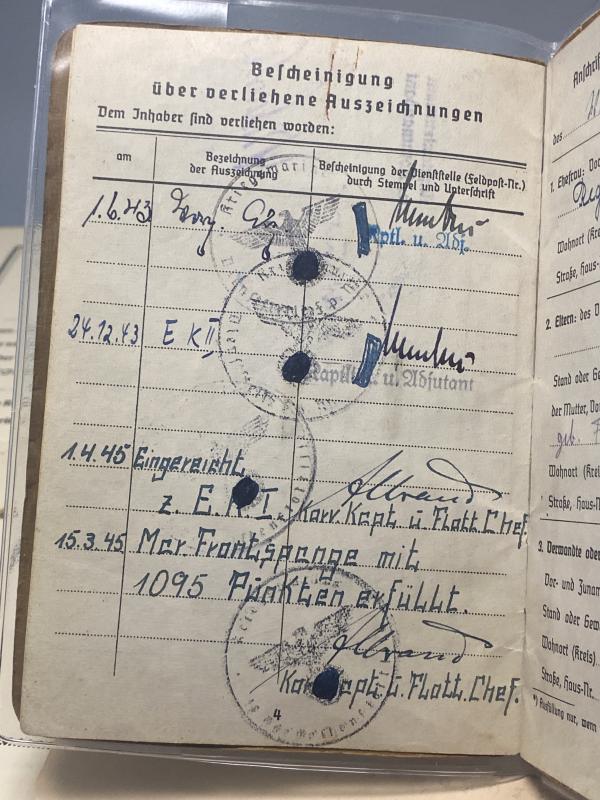 Bescheinigung
über verliehene Auszeichnungen
Dem Inhaber sind verliehen worden:
am
Bezeichnung
der Auszeichnung
Bescheinigung der Dienststelle (Feldpost-Nr.)
durch Stempel und Unterschrift
1.6.43
Kptl. u. Adj.
24.12.43 E K II,
Kaptltn. u. Adjutant
1.4.45 Eingereicht
z. E. K I. Korv. Kapt. ü. Flott. Chef.
15.3.45 Mar. Frontspange mit
1095 Pünkten erfüllt.
Korv. Kapt. ü. Flott. Chef.
4
Anschrif
des
1. Ehefrau: Vor
Wohnort (Kre
Straße, Haus-
2. Eltern: des D
Stand oder Ge
der Mutter, Vor
geb. F
Wohnort (Kreis
Straße, Haus-Nr
3. Verwandte oder
Vor- und Zunam
Stand oder Gew
Wohnort (Kreis)
Straße, Haus-Nr.
*) Ausfüllung nur, wenn